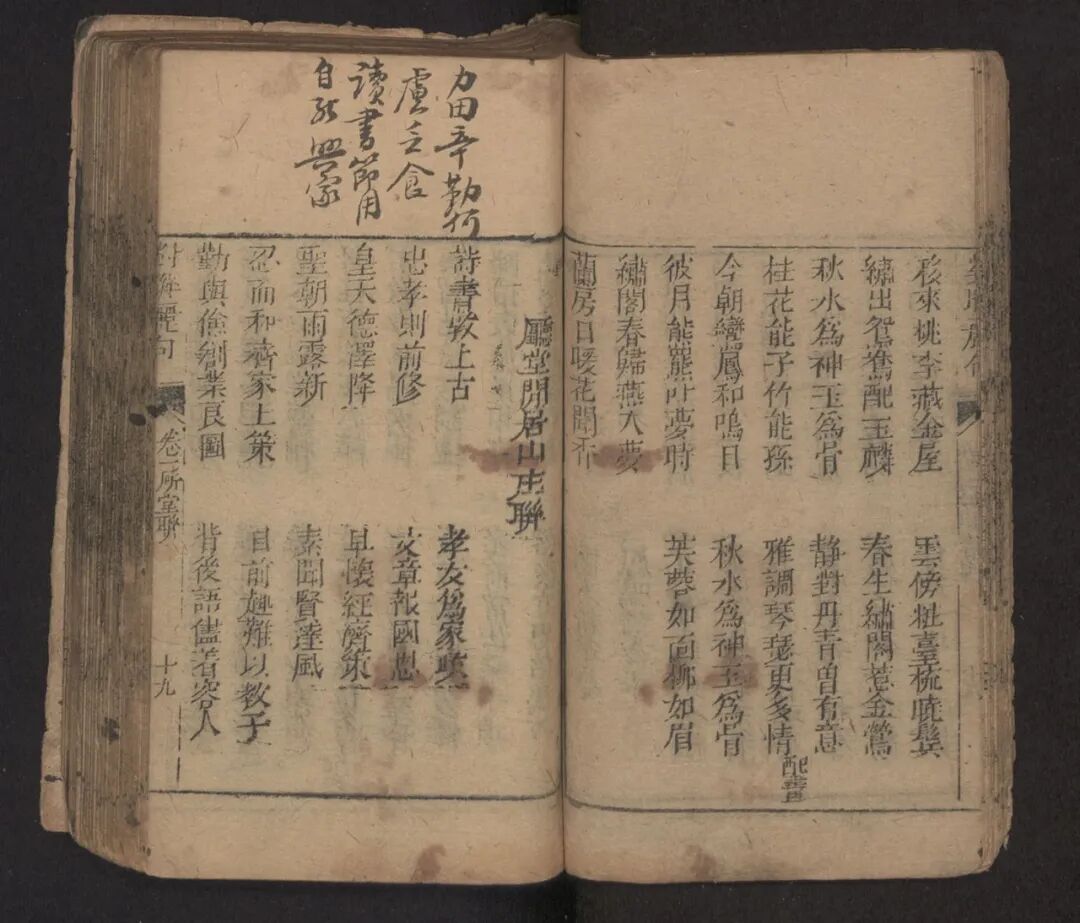 移來桃李藏金屋
雲傍粧臺梳曉鬓
繡出鴛鴦配玉麟
春生繡閣惹金鶯
秋水為神玉為骨
靜對丹青曾有意
桂花能子竹能孫
雅調琴瑟更多情
配書
今朝鸞鳳和鳴日
秋水為神玉為骨
彼月熊羆叶夢時
芙蓉如面柳如眉
繡閣春歸燕入夢
蘭房日暖花聞香
廳堂閒居山庄聯
詩書敦上古
孝友為家政
忠孝則前修
文章報國恩
皇天德澤降
早懷經濟策
聖朝雨露新
素聞賢達風
忍而和齊家上策
目前趣難以教子
勤與儉創業良圖
背後語儘著容人
對聯麗句
卷一
堂聯
十九
力田辛勤何
慮乏食
讀書節用
自然興家